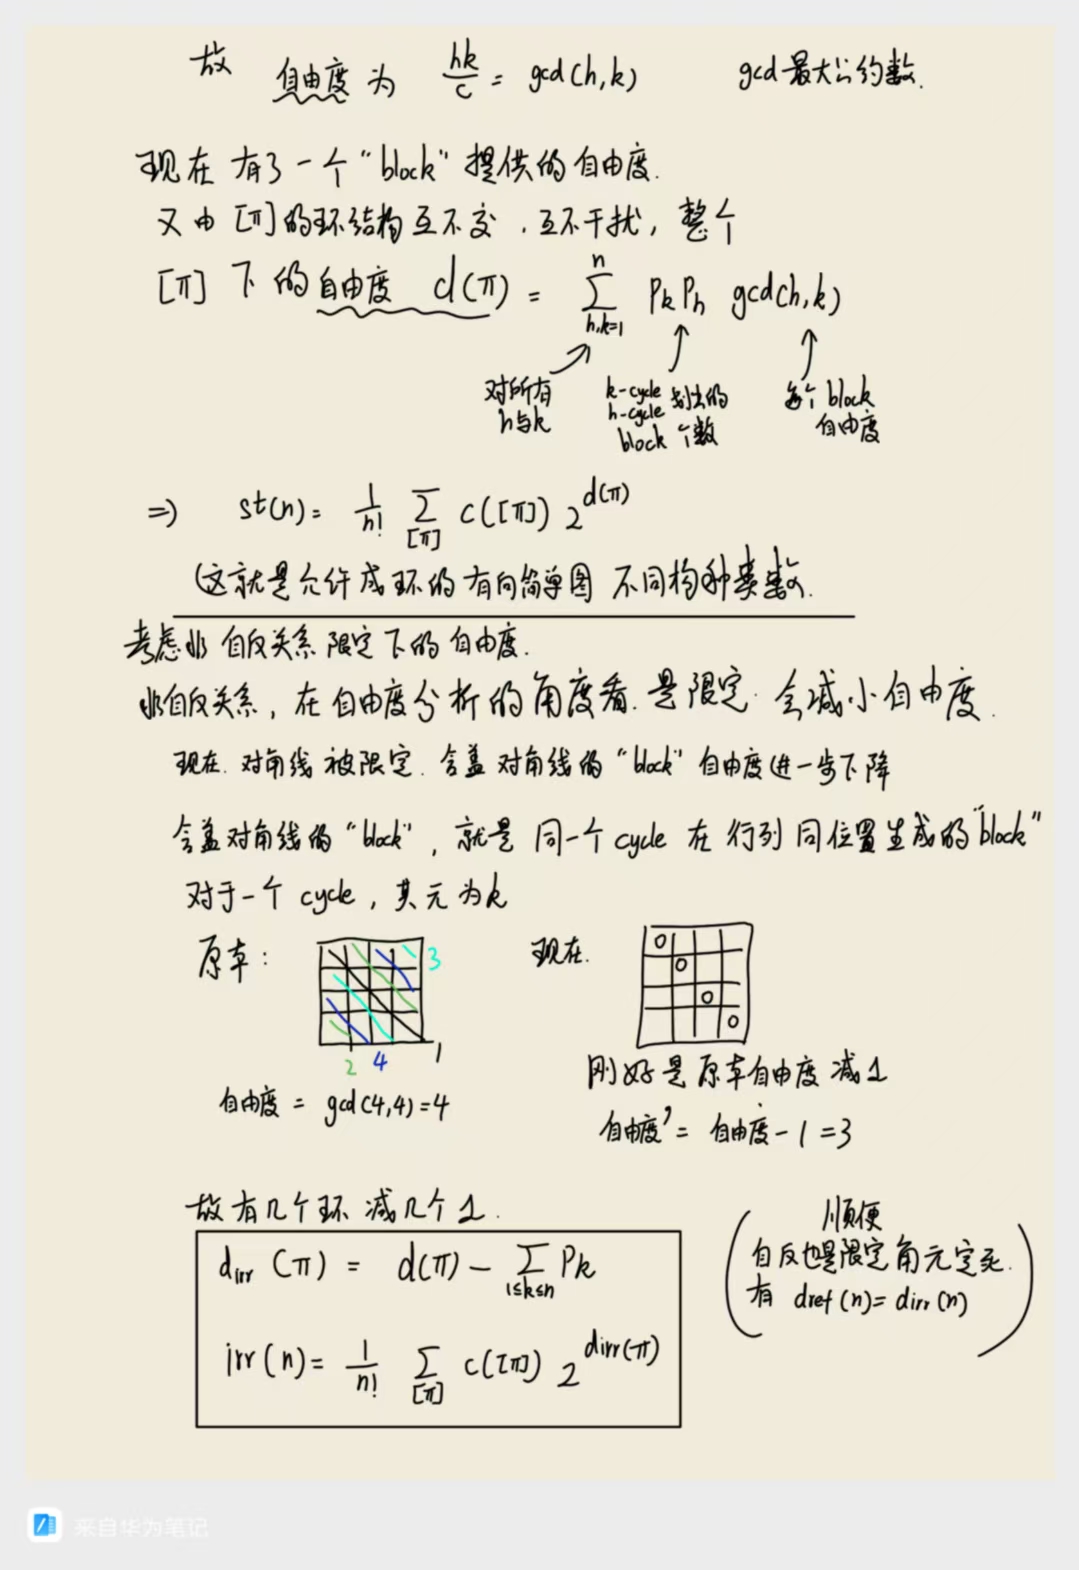 故 自由度 为 hk/c = gcd(h,k) gcd 最大公约数.
现在 有了 一个 "block" 提供的 自由度.
又由 [π] 的环结构 互不交, 互不干扰, 整个
[π] 下的 自由度 d(π) = ∑_{h,k=1}^{n} PkPh gcd(h,k)
对所有 h与k
k-cycle h-cycle 划出的 block 个数
每个 block 自由度
⇒ st(n) = 1/n! ∑_{[π]} c([π]) 2^{d(π)}
(这就是允许成环的有向简单图 不同构种类数.
考虑非自反关系 限定下的自由度.
非自反关系, 在自由度分析的角度看. 是限定. 会减小自由度.
现在. 对角线 被限定. 含盖对角线的 "block" 自由度进一步下降
含盖对角线的 "block", 就是 同一个 cycle 在行列 同位置生成的 "block"
对于一个 cycle, 其元为k
原本: 现在.
3
2 4 1
自由度 = gcd(4,4)=4
刚好是 原本自由度 减1
自由度' = 自由度 - 1 = 3
故有几个环 减几个1.
d_irr (π) = d(π) - ∑_{1≤k≤n} Pk
irr(n) = 1/n! ∑_{[π]} c([π]) 2^{dirr(π)}
(顺便
自反也是限定角元定死.
有 dref(n) = dirr(n) )
来自华为笔记